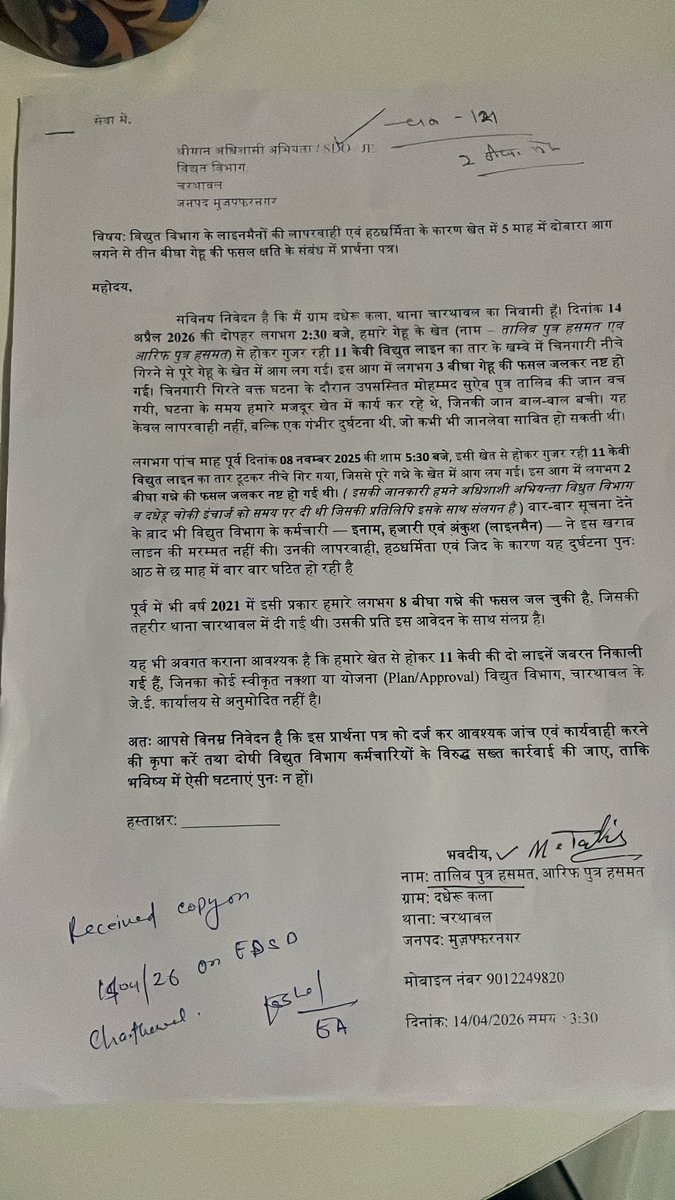 सेवा में,
श्रीमान अधिशासी अभियंता / SDO / JE
विद्युत विभाग
चरथावल
जनपद मुज़फ्फरनगर
विषय: विद्युत विभाग के लाइनमैनों की लापरवाही एवं हठधर्मिता के कारण खेत में 5 माह में दोबारा आग
लगने से तीन बीघा गेहू की फसल क्षति के संबंध में प्रार्थना पत्र।
महोदय,
सविनय निवेदन है कि मैं ग्राम दधेरू कला, थाना चारथावल का निवासी हूँ। दिनांक 14
अप्रैल 2026 की दोपहर लगभग 2:30 बजे, हमारे गेहू के खेत (नाम – तालिब पुत्र हसमत एव
आरिफ पुत्र हसमत) से होकर गुजर रही 11 केवी विद्युत लाइन का तार के खम्बे में चिनगारी नीचे
गिरने से पूरे गेहू के खेत में आग लग गई। इस आग में लगभग 3 बीघा गेहू की फसल जलकर नष्ट हो
गई। चिनगारी गिरते वक्त घटना के दौरान उपसस्तित मोहम्मद सुऐब पुत्र तालिब की जान वच
गयी, घटना के समय हमारे मजदूर खेत में कार्य कर रहे थे, जिनकी जान बाल-बाल बची। यह
केवल लापरवाही नहीं, बल्कि एक गंभीर दुर्घटना थी, जो कभी भी जानलेवा साबित हो सकती थी।
लगभग पांच माह पूर्व दिनांक 08 नवम्बर 2025 की शाम 5:30 बजे, इसी खेत से होकर गुजर रही 11 केवी
विद्युत लाइन का तार टूटकर नीचे गिर गया, जिससे पूरे गन्ने के खेत में आग लग गई। इस आग में लगभग 2
बीघा गन्ने की फसल जलकर नष्ट हो गई थी। ( इसकी जानकारी हमने अधिशाशी अभियन्ता विधुत विभाग
व दधेडू चोकी इंचार्ज को समय पर दी थी जिसकी प्रतिलिपि इसके साथ संलगन है ) बार-बार सूचना देने
के बाद भी विद्युत विभाग के कर्मचारी — इनाम, हजारी एवं अंकुश (लाइनमैन) — ने इस खराब
लाइन की मरम्मत नहीं की। उनकी लापरवाही, हठधर्मिता एवं जिद के कारण यह दुर्घटना पुनः
आठ से छ माह में बार बार घटित हो रही है
पूर्व में भी वर्ष 2021 में इसी प्रकार हमारे लगभग 8 बीघा गन्ने की फसल जल चुकी है, जिसकी
तहरीर थाना चारथावल में दी गई थी। उसकी प्रति इस आवेदन के साथ संलग्न है।
यह भी अवगत कराना आवश्यक है कि हमारे खेत से होकर 11 केवी की दो लाइनें जबरन निकाली
गई हैं, जिनका कोई स्वीकृत नक्शा या योजना (Plan/Approval) विद्युत विभाग, चारथावल के
जे.ई. कार्यालय से अनुमोदित नहीं है।
अतः आपसे विनम्र निवेदन है कि इस प्रार्थना पत्र को दर्ज कर आवश्यक जांच एवं कार्यवाही करने
की कृपा करें तथा दोषी विद्युत विभाग कर्मचारियों के विरुद्ध सख्त कार्रवाई की जाए, ताकि
भविष्य में ऐसी घटनाएं पुनः न हों।
हस्ताक्षर: ____________
भवदीय,
नाम: तालिब पुत्र हसमत, आरिफ पुत्र हसमत
ग्राम: दधेरू कला
थाना: चरथावल
जनपद: मुज़फ्फरनगर
मोबाइल नंबर 9012249820
दिनांक: 14/04/2026 समय - 3:30
Received copy on
14/04/26 on EDSD
Charthawal.
EA